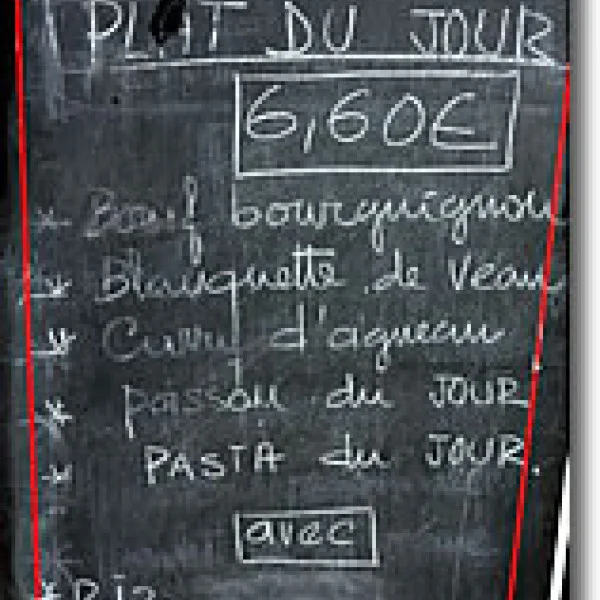 PLAT DU JOUR
6,60€
* Bœuf bourguignon
* Blanquette de Veau
* Curry d'agneau
* poisson du JOUR
* PASTA du JOUR.
avec
* Riz